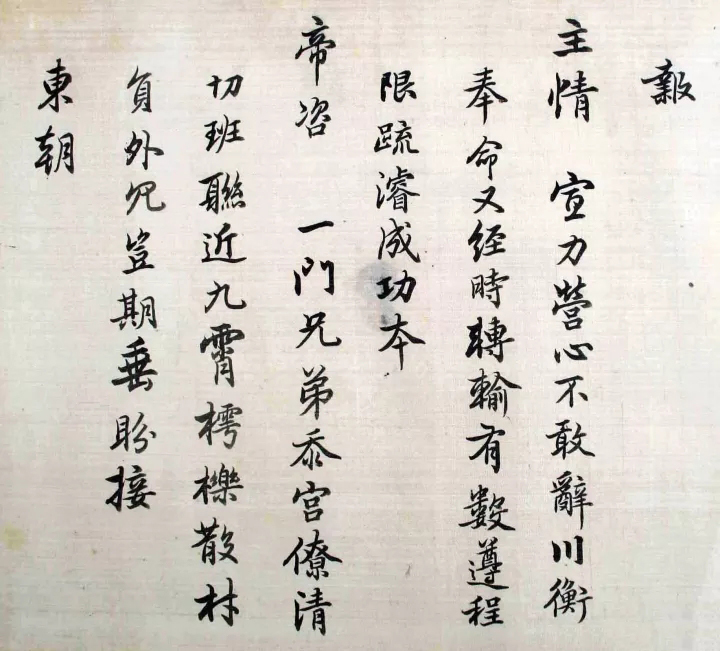 報
主情 宣力營心不敢辭川衡
奉命又經時轉輸有數遵程
限疏濬成功本
帝咨 一門兄弟忝宮僚清
切班聯近九霄樗櫟散材
員外冗豈期垂盼接
東朝